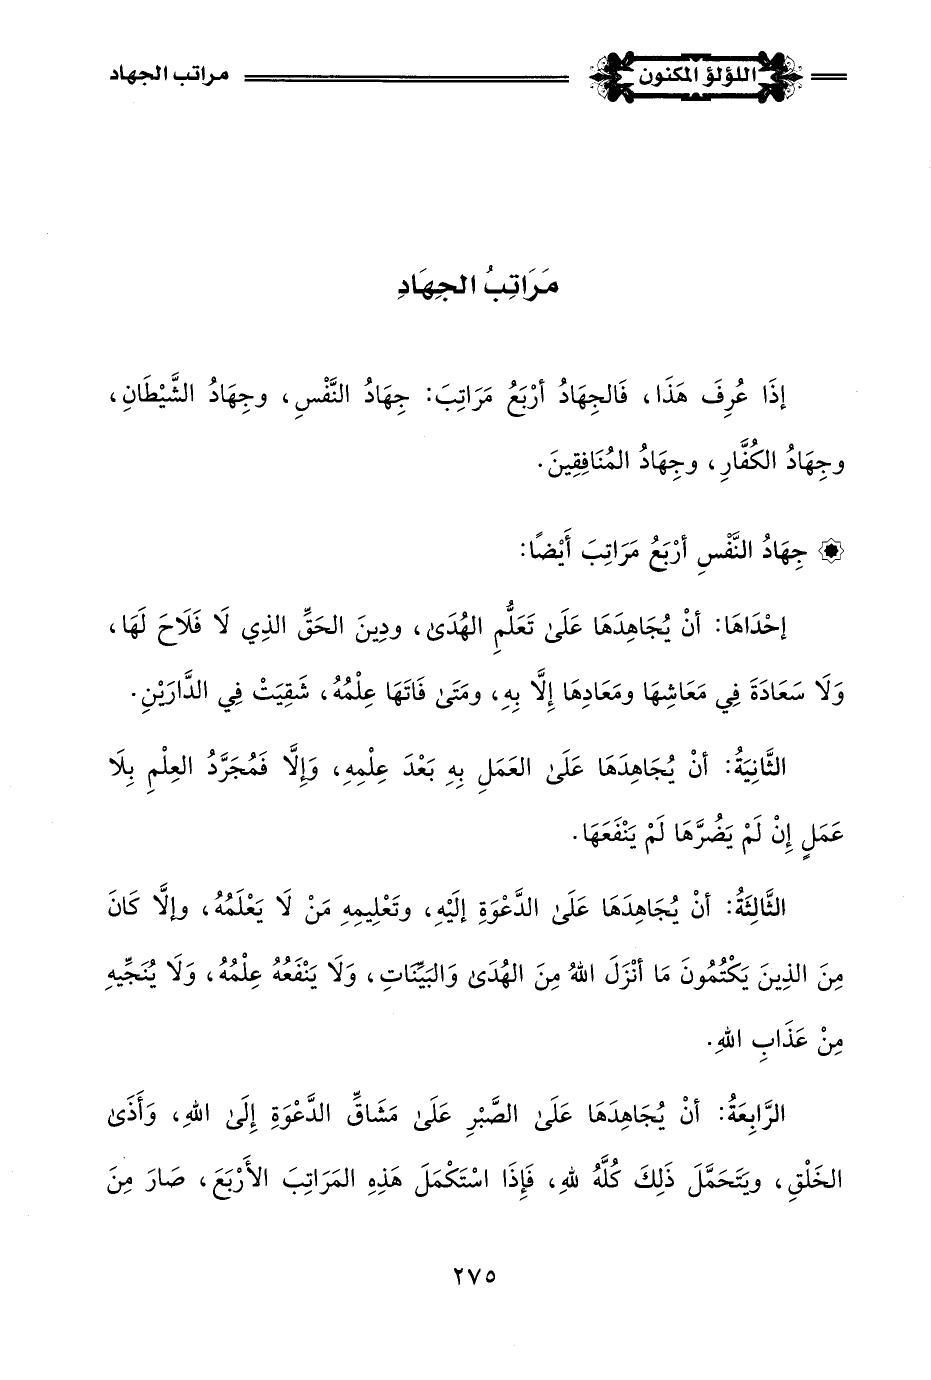 اللؤلؤ المكنون
مراتب الجهاد
مَرَاتِبُ الجِهَادِ
إذَا عُرِفَ هَذَا، فَالجِهَادُ أرْبَعُ مَرَاتِبَ: جِهَادُ النَّفْسِ، وجِهَادُ الشَّيْطَانِ،
وجِهَادُ الكُفَّارِ، وجِهَادُ المُنَافِقِينَ.
جِهَادُ النَّفْسِ أرْبَعُ مَرَاتِبَ أَيْضًا:
إحْدَاهَا: أنْ يُجَاهِدَهَا عَلَىٰ تَعَلُّمِ الهُدَىٰ، ودِينَ الحَقِّ الذِي لَا فَلَاحَ لَهَا،
وَلَا سَعَادَةَ فِي مَعَاشِهَا ومَعَادِهَا إلَّا بِهِ، ومَتَىٰ فَاتَهَا عِلْمُهُ، شَقِيَتْ فِي الدَّارَيْنِ.
الثَّانِيَةُ: أنْ يُجَاهِدَهَا عَلَىٰ العَمَلِ بِهِ بَعْدَ عِلْمِهِ، وَإلَّا فَمُجَرَّدُ العِلْمِ بِلَا
عَمَلٍ إِنْ لَمْ يَضُرَّهَا لَمْ يَنْفَعَهَا.
الثَّالِثَةُ: أنْ يُجَاهِدَهَا عَلَىٰ الدَّعْوَةِ إلَيْهِ، وتَعْلِيمِهِ مَنْ لَا يَعْلَمُهُ، وإلَّا كَانَ
مِنَ الذِينَ يَكْتُمُونَ مَا أنْزَلَ اللهُ مِنَ الهُدَىٰ وَالبَيِّنَاتِ، وَلَا يَنْفَعُهُ عِلْمُهُ، وَلَا يُنَجِّيهِ
مِنْ عَذَابِ اللهِ.
الرَّابِعَةُ: أنْ يُجَاهِدَهَا عَلَىٰ الصَّبْرِ عَلَىٰ مَشَاقِّ الدَّعْوَةِ إِلَىٰ اللهِ، وَأَذَىٰ
الخَلْقِ، ويَتَحَمَّلَ ذَلِكَ كُلَّهُ للهِ، فَإِذَا اسْتَكْمَلَ هَذِهِ المَرَاتِبَ الأَرْبَعَ، صَارَ مِنَ
٢٧٥